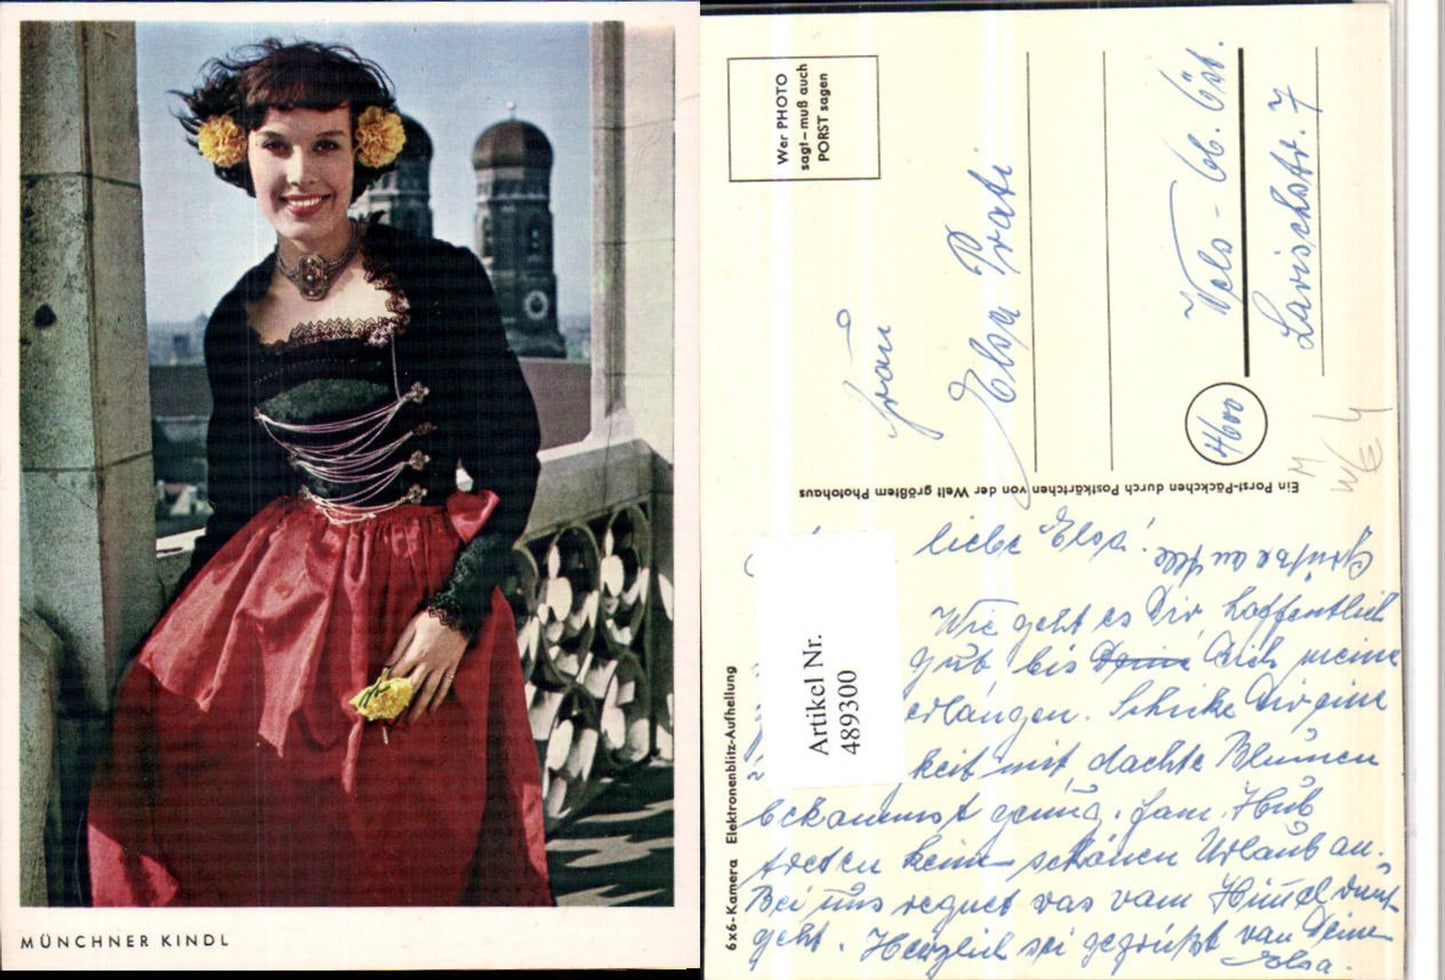 MÜNCHNER KINDL
Wer PHOTO
sagt – muß auch
PORST sagen
Frau
Elsa Prati
Wels - Ob. Öst.
Larischstr. 7
4600
Ein Porst-Päckchen durch Postkärtchen von der Welt größtem Photohaus
6x6-Kamera Elektronenblitz-Aufhellung
Artikel Nr.
489300
liebe Elsa!
Grüße an Alle
Wie geht es Dir, hoffentlich
gut, bis Dich meine
erlangen. Schicke Dir eine
keit mit, dachte Blumen
bekommst genug. Fam. Hub
treten keinen schönen Urlaub an.
Bei uns regnet was vom Himmel runt-
geht. Herzlich sei gegrüßt von Deiner
Elsa.